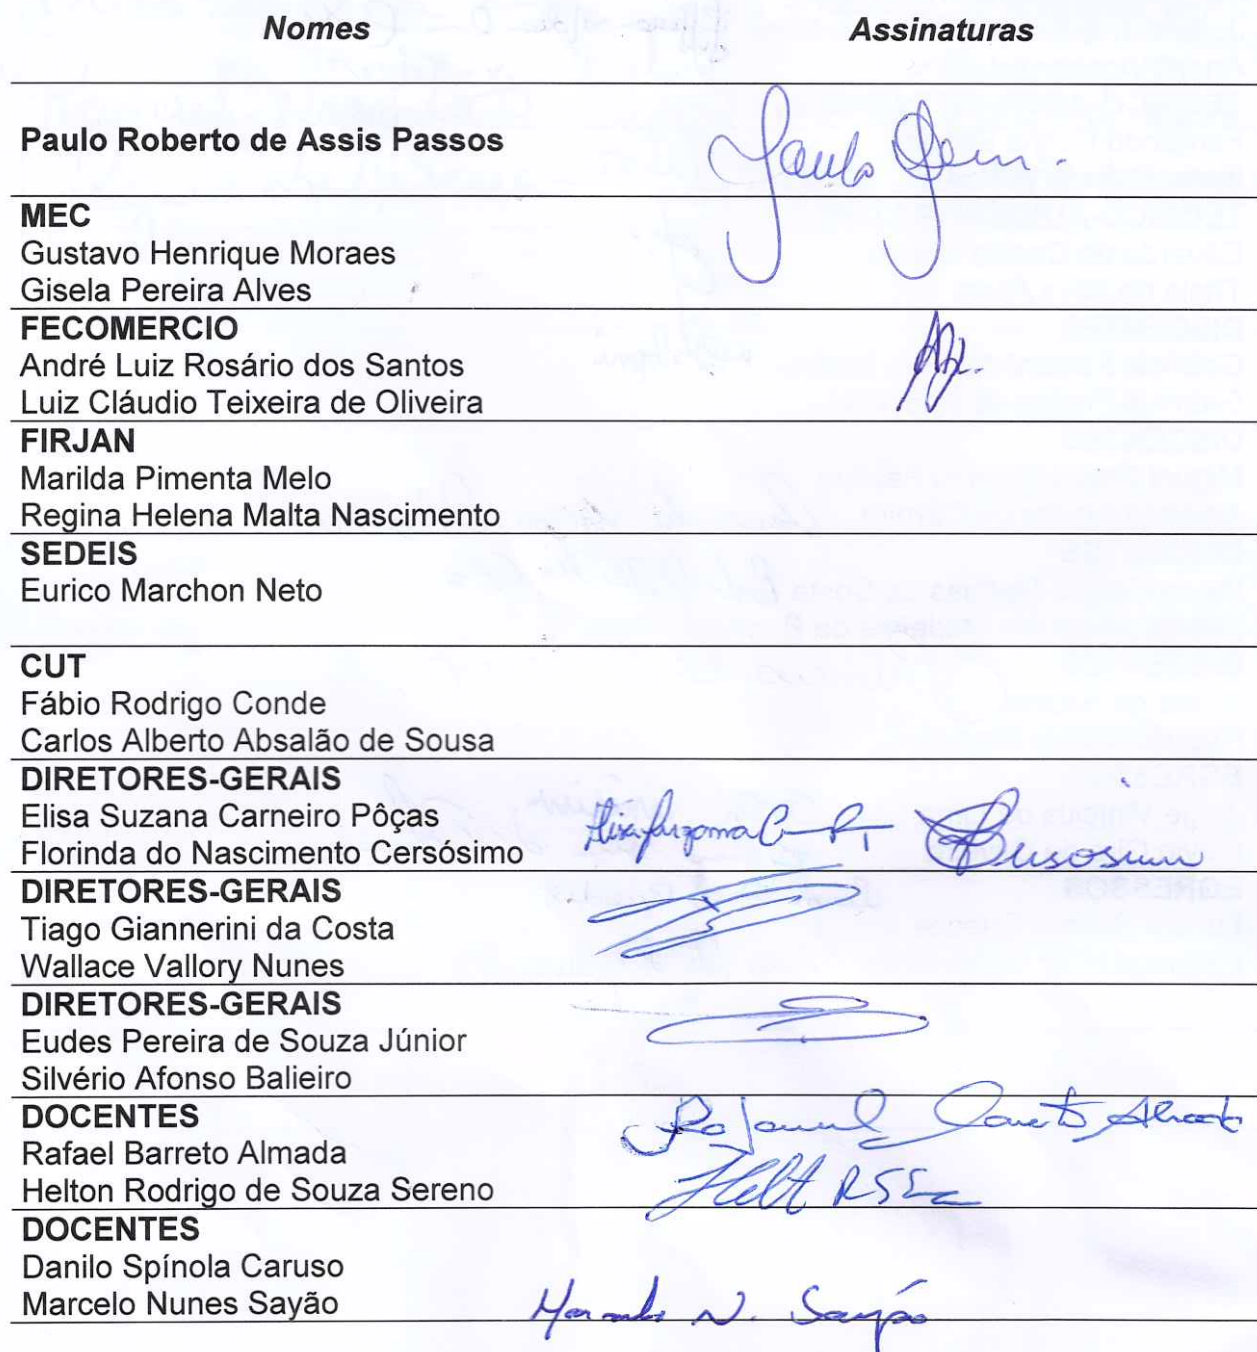 Nomes Assinaturas
Paulo Roberto de Assis Passos
Paulo
MEC
Gustavo Henrique Moraes
Gisela Pereira Alves
FECOMERCIO
André Luiz Rosário dos Santos
Luiz Cláudio Teixeira de Oliveira
FIRJAN
Marilda Pimenta Melo
Regina Helena Malta Nascimento
SEDEIS
Eurico Marchon Neto
CUT
Fábio Rodrigo Conde
Carlos Alberto Absalão de Sousa
DIRETORES-GERAIS
Elisa Suzana Carneiro Pôças
Florinda do Nascimento Cersósimo
DIRETORES-GERAIS
Tiago Giannerini da Costa
Wallace Vallory Nunes
DIRETORES-GERAIS
Eudes Pereira de Souza Júnior
Silvério Afonso Balieiro
DOCENTES
Rafael Barreto Almada
Helton Rodrigo de Souza Sereno
DOCENTES
Danilo Spínola Caruso
Marcelo Nunes Sayão
Marcelo N. Sayão